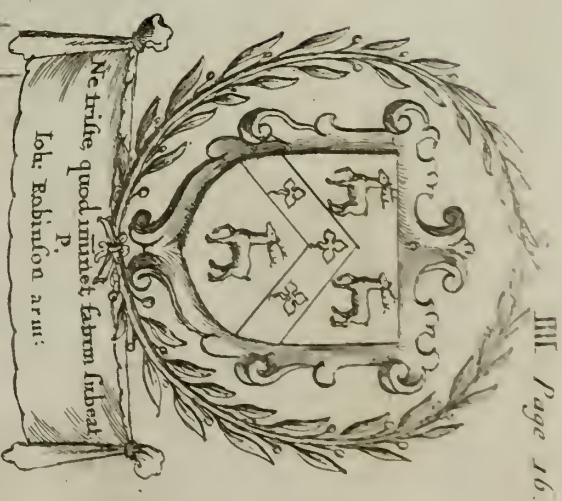 IIII Page 16.
Ne triste, quod iminet, fatum subeat,
P.
Ioh: Robinson arm: